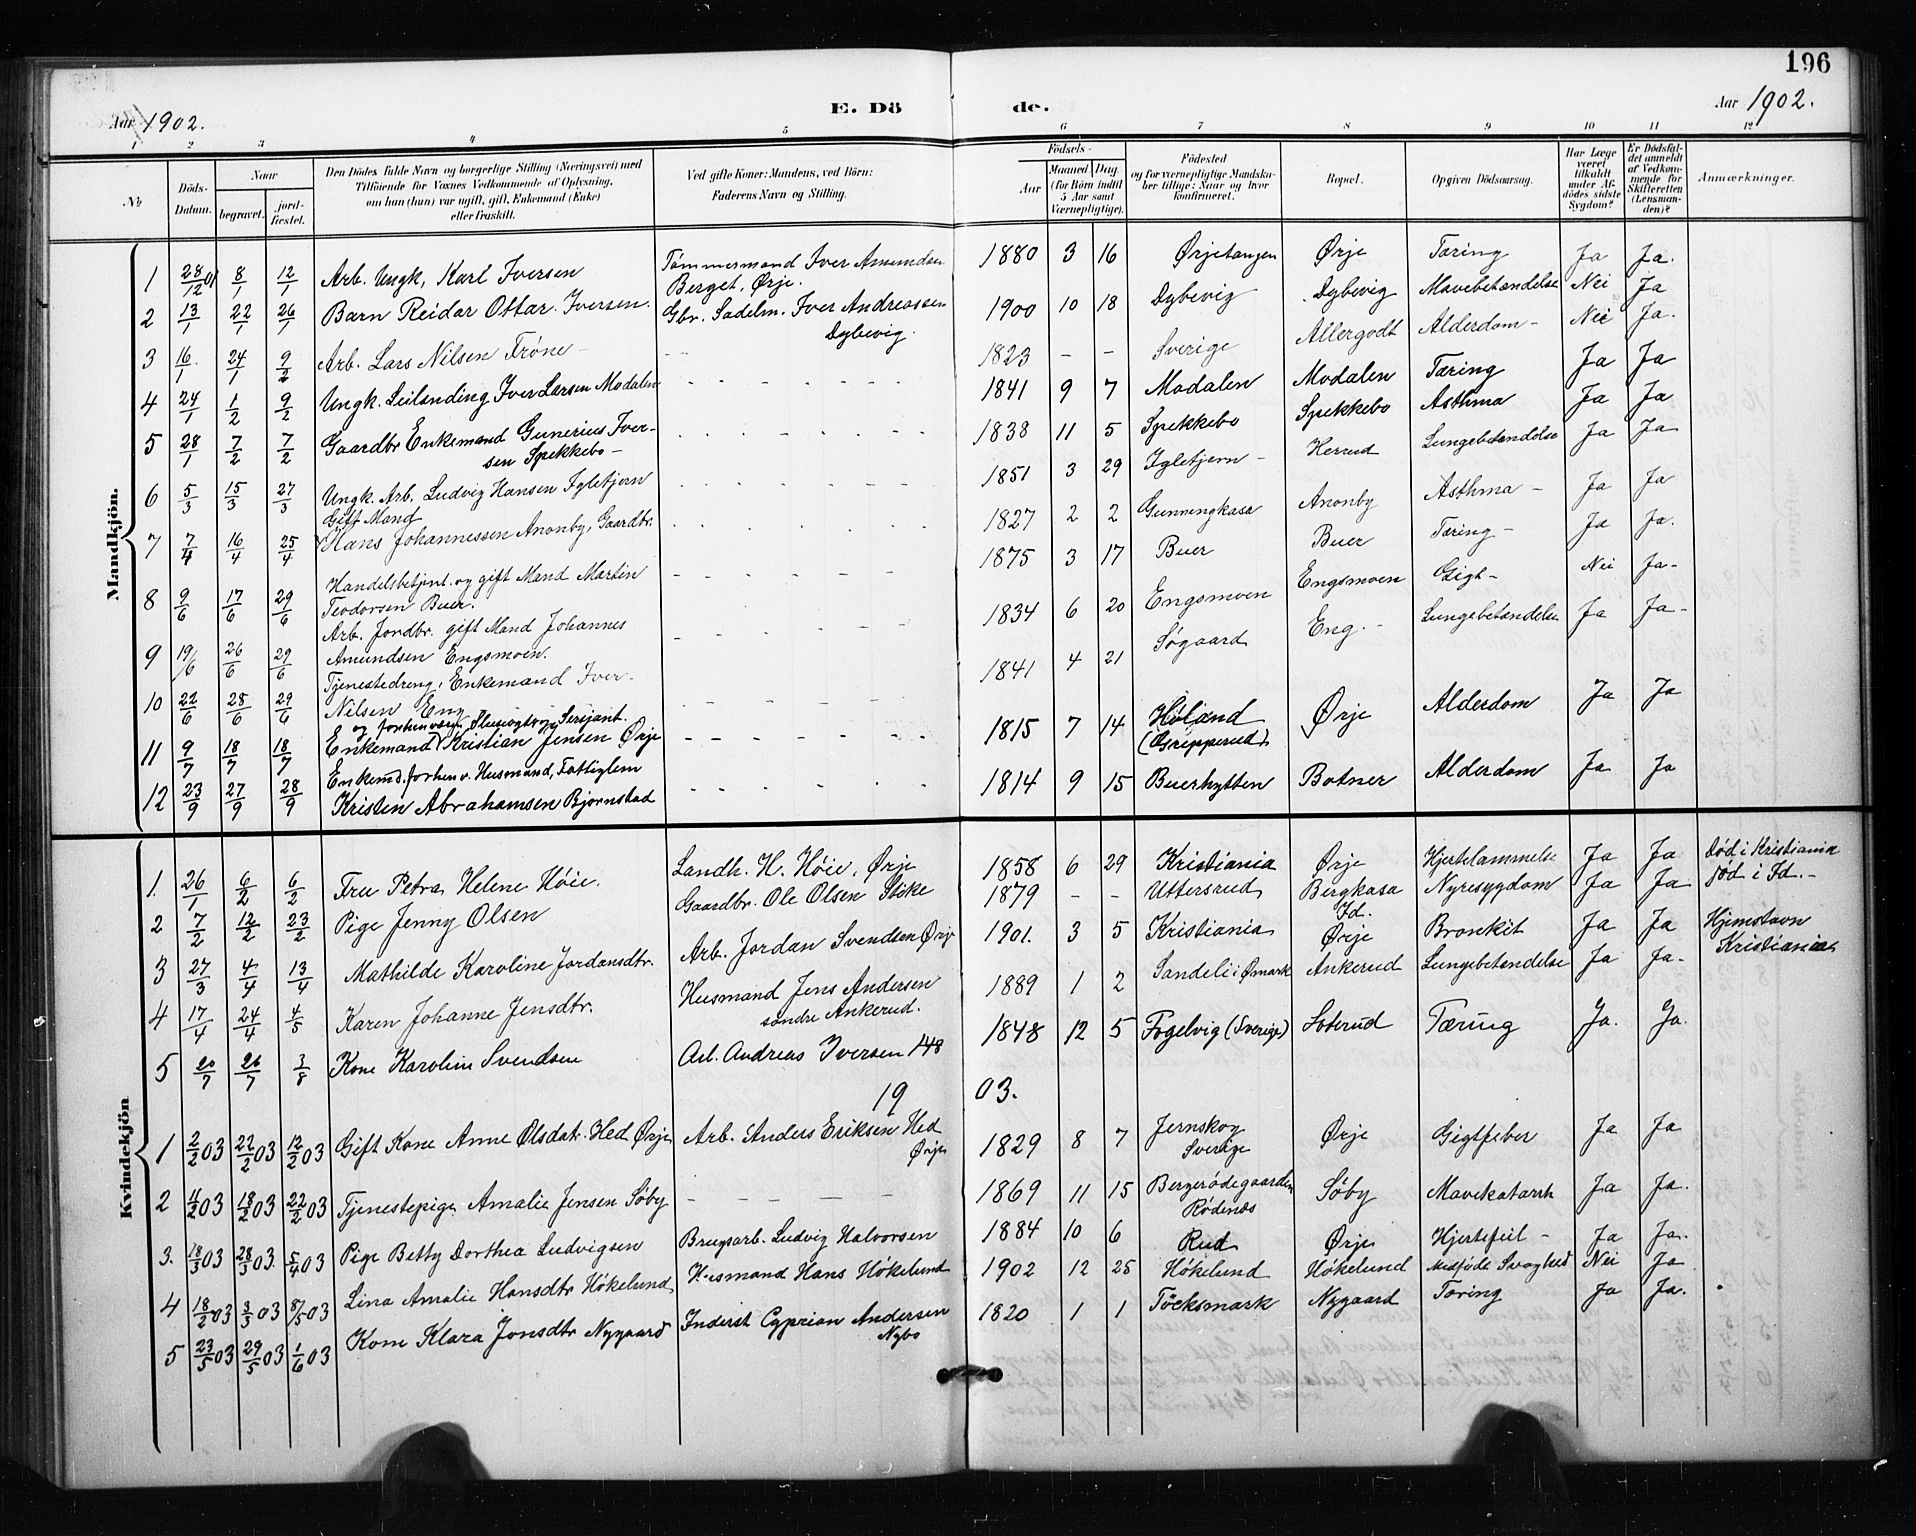 196
Aar 1902.
E. Dö de.
Aar 1902.
1 2 3 4 5 6 7 8 9 10 11 12
№
Döds-Datum.
Naar
begravet.
jord-fæstet.
Den Dödes fulde Navn og borgerlige Stilling (Næringsvei) med
Tilföiende for Voxnes Vedkommende af Oplysning,
om han (hun) var ugift, gift, Enkemand (Enke)
eller fraskilt.
Ved gifte Koner: Mandens, ved Börn:
Faderens Navn og Stilling.
Födsels-
Aar
Maaned Dag
(for Börn indtil
5 Aar samt
Værnepligtige).
Födested
og for værnepligtige Mandska-
ber tillige: Naar og hvor
konfirmeret.
Bopæl.
Opgiven Dödsaarsag.
Har Læge
været
tilkaldt
under Af-
dödes sidste
Sygdom?
Er Dödsfal-
det anmeldt
af Vedkom-
mende for
Skifteretten
(Lensman-
den)?
Anmærkninger.
Mandkjön.
1 28/12 01 8/1 12/1 Arb. Ungk. Karl Iversen Tømmermand Iver Amundsen Berget, Ørje. 1880 3 16 Ørjetangen Ørje Tæring Ja Ja.
2 13/1 22/1 26/1 Barn Reidar Ottar Iversen. Gbr. Sadelm. Iver Andreassen Dybevig. 1900 10 18 Dybevig Dybevig Mavebetændelse Nei Ja
3 16/1 24/1 9/2 Arb. Lars Nilsen Trøne - 1823 - - Sverige Allergodt Alderdom - Nei Ja.
4 24/1 1/2 9/2 Ungk. Leilending Iver Larsen Modalen 1841 9 7 Modalen Modalen Tæring Ja Ja
5 28/1 7/2 7/2 Gaardbr Enkemand Gunerius Iver-
sen Spekkebo - 1838 11 5 Spekkebo Spekkebo Asthma Ja Ja
6 5/3 15/3 27/3 Ungk. Arb. Ludvig Hansen Igletjern 1851 3 29 Igletjern - Herrud Lungebetændelse Ja Ja
7 7/4 16/4 25/4 Gift Mand
Hans Johannessen Anonby, Gaardbr. 1827 2 2 Gunningkasa Anonby Asthma - Ja Ja
8 9/6 17/6 29/6 Handelsbetjent. og gift Mand Martin
Teodorsen Buer. 1875 3 17 Buer Buer Tæring - Ja Ja.
9 19/6 26/6 29/6 Arb. Jordbr. gift Mand Johannes
Amundsen Engsmoen. 1834 6 20 Engsmoen Engsmoen Gigt - Nei Ja -
10 22/6 28/6 29/6 Tjenestedreng, Enkemand Iver
Nilsen Eng 1841 4 21 Søgaard Eng. - Lungebetændelse Ja Ja -
11 9/7 18/7 18/7 og forhenværn Sersjant.
Enkemand Kristian Jensen Ørje 1815 7 14 Høland
(Gripperud) Ørje Alderdom Ja Ja
12 23/9 27/9 28/9 Enkemd. forhenv. Husmand, Fattiglem
Kristen Abrahamsen Bjørnstad 1814 9 15 Buerhytten Botner Alderdom Ja Ja
Kvindekjön
1. 26/1 6/2 6/2 Fru Petra Helene Høie. Landh. H. Høie, Ørje 1858 6 29 Kristiania Ørje Hjertelammelse Ja Ja Død i Kristiania
2 7/2 12/2 23/2 Pige Jenny Olsen Gaardbr. Ole Olsen Stike 1879 - - Uttersrud Bergkasa
Id. Nyresygdom Ja Ja Død i Id. -
3 27/3 4/4 13/4 Mathilde Karoline Jordansdtr. Arb. Jordan Svendsen Ørje 1901. 3 5 Kristiania Ørje Bronkit Ja Ja Hjemstavn
Kristiania
4 17/4 24/4 4/5 Karen Johanne Jensdtr. Husmand Jens Andersen
søndre Ankerud. 1889 1 2 Sandeli i Ømark Ankerud Lungebetændelse Ja Ja -
5 20/7 26/7 3/8 Kone Karolin Svendsen Arb. Andreas Iversen 148 1848 12 5 Fogelvig (Sverige) Loterud Tæring Ja. Ja.
1903.
1 2/2 03 22/2 03 12/2 03 Gift Kone Anne Olsdatt. Hed Ørje Arb. Anders Eriksen Hed
Ørje 1829 8 7 Jernskog
Sverige Ørje Gigtfeber Ja Ja
2 4/2 03 18/2 03 22/2 03 Tjenestepige Amalie Jensen Søby - - - - 1869 11 15 Bergerødegaarden
Rødenæs Søby Mavekatarrh Ja Ja.
3. 18/3 03 28/3 03. 5/4 03 Pige Betty Dorthea Ludvigsen Brugsarb. Ludvig Halvorsen 1884 10 6 Rud Ørje Hjertefeil - Ja Ja.
4 18/2 03 3/3 03 8/5 03 Lina Amalie Hansdtr Høkelund Husmand Hans Høkelund 1902 12 25 Høkelund Høkelund Medfødt Svaghed Nei Ja
5 23/5 03 29/5 03 1/6 03 Kone Klara Jonsdtr Nygaard Inderst Cyprian Andersen
Nybo 1820 1 1 Töcksmark Nygaard Tæring Ja Ja.